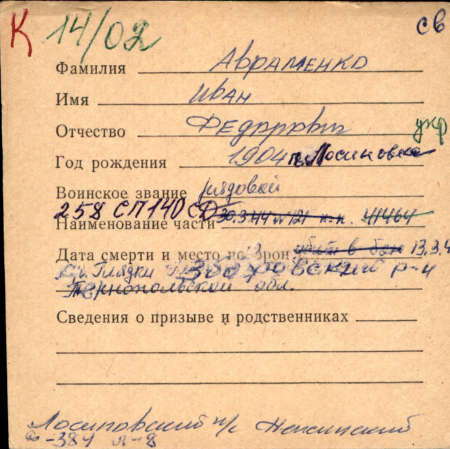 К 14/02 св
Фамилия Авраменко
Имя Иван
Отчество Федорович укр
Год рождения 1904 Лосиновка
Воинское звание рядовой
258 СП 140 СД
Наименование части 30.3.44 п.п. 41464
Дата смерти и место убит в бою 13.3.4
Глядки Зборовский р-н
Тернопольской обл.
Сведения о призыве и родственниках
Лосиновский Нежинский
-384 л-8